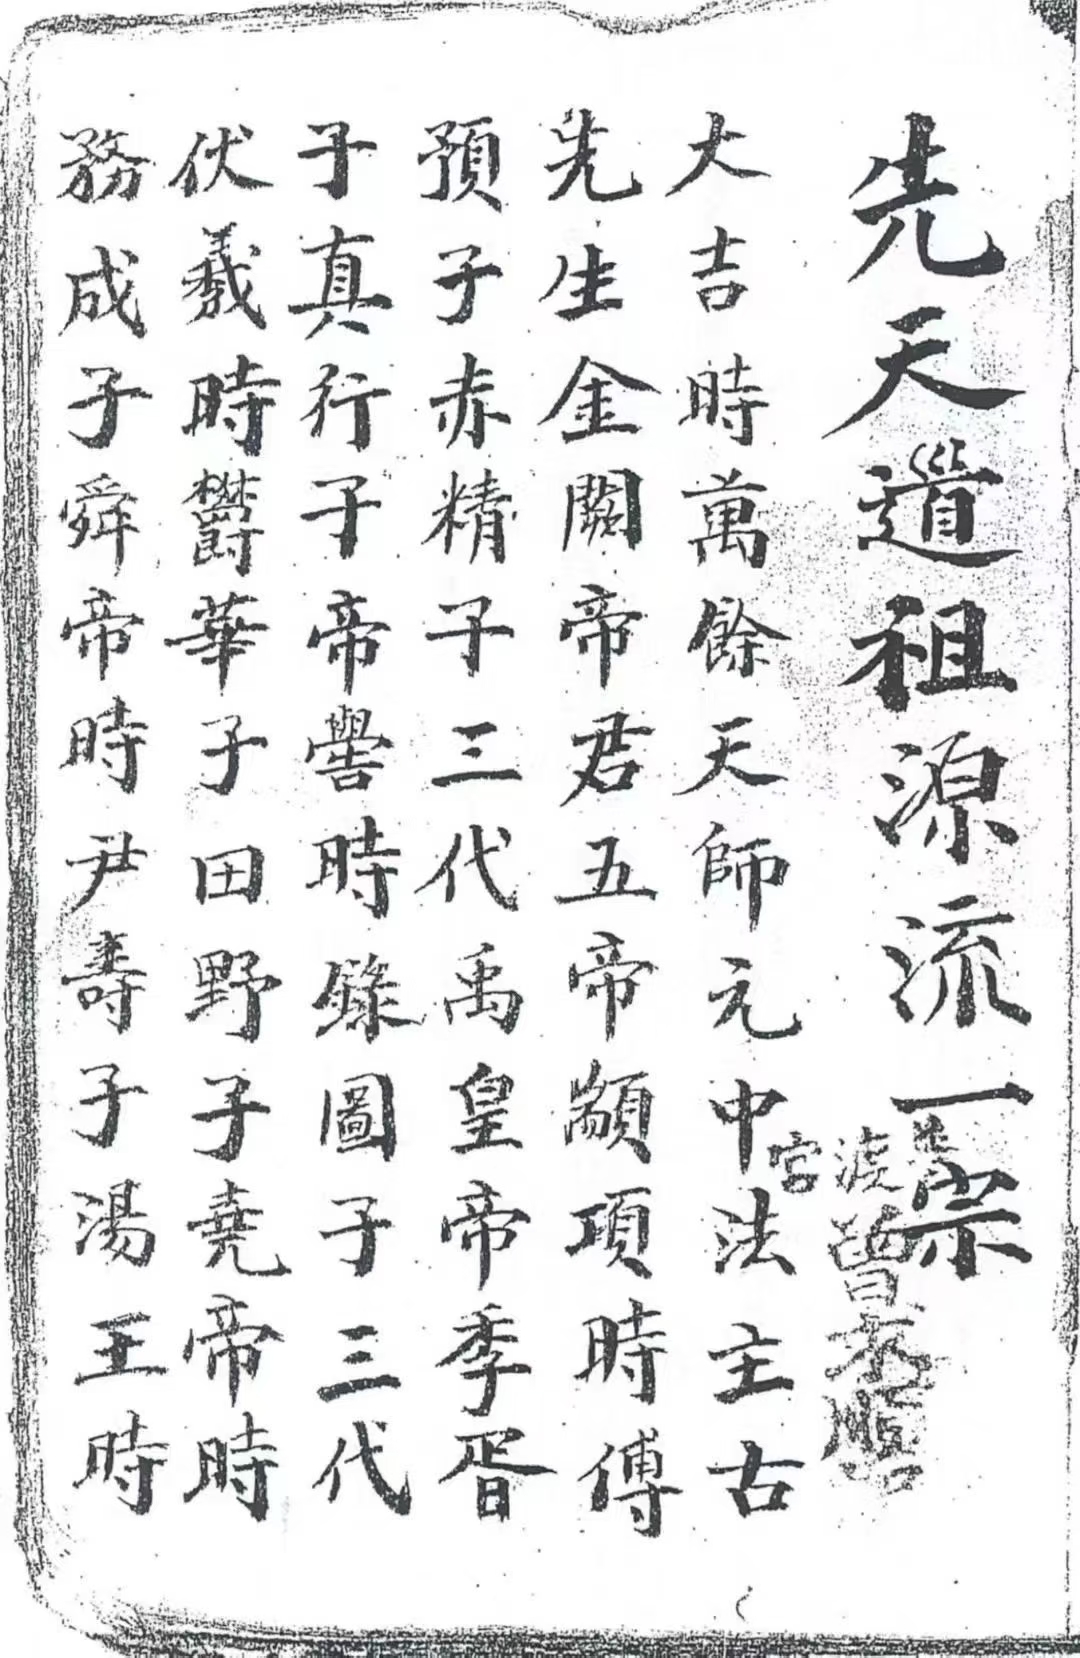 先天道祖源流一宗
大吉時萬餘天師元中法主古
先生金闕帝君五帝顓項時傅
預子赤精子三代禹皇帝季胥
子真行子子帝嚳時錄圖子三代
伏羲時欝華子田野子堯帝時
務成子舜帝時尹壽子湯王時